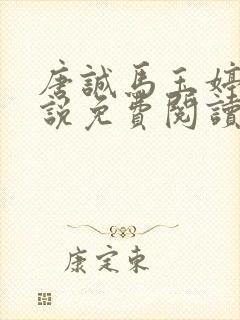 唐誠馬玉婷
說免費閱讀
康定東